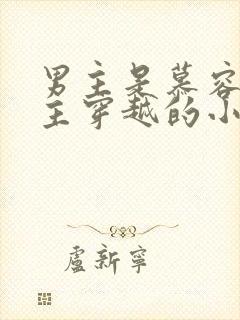 男主是慕容
主穿越的小
盧新寧